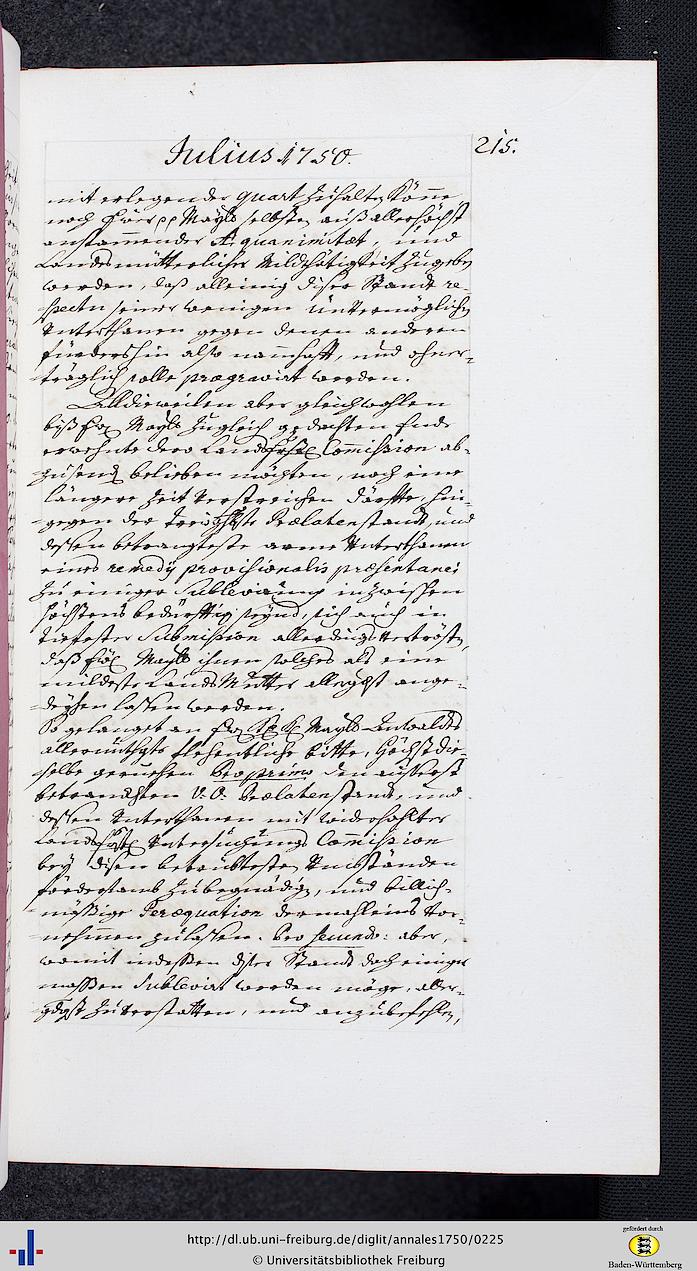 Julius 1750.
215.
mit erlegender quart zuhalten könne,
noch Euer pp Mayls selbsten auß allerhöchst
anstammender Æquanimitæt, und
Landesmütterlicher Mildthätigkeit zugeben
werden, daß alleinig diser Standt re-
spectu seiner wenigen unvermöglichen
Unterthanen gegen denen anderen
fürdershin also nammhafft, und ohner-
-träglich solle prægravirt werden.
Alldieweilen aber gleichwohlen
biß Mayls zugleich gedachten Ends
erwehnte dero Commission ab-
zusend belieben möchten, noch eine
längere Zeit verstreichen därffte, hin-
-gegen der Prælatenstandt, und
dessen betrangteste arme Unterthanen
eines remedij provisionalis præsentanei
zu einiger Sublevirung inzwischen
höchstens bedürfftig seynd, sich auch in
tieffester Submission allerdings vertrösten,
daß Mayls ihnen solches als eine
mildeste Lands Mutter allergst ange-
-deyhen lassen werden.
So gelanget an Mayls Anwalds
flehentliche bitte, Höchst die-
-selbe geruehen Pro primo den äusserst
betrangten V. Ö. Prælatenstandt, und
dessen Unterthanen mit widerhohlter
Untersuchungs Commission
bey disen betrübtesten Umbständen
fördersamb zubegnädigen, und billich-
-mässige Peræquation dermahleins Vor-
-nehmen zulassen. Pro secundo: aber,
womit indessen diser Standt doch einiger
massen Sublevirt werden möge, aller-
-gdgst zuverstatten, und anzubefehlen,
http://dl.ub.uni-freiburg.de/diglit/annales1750/0225
© Universitätsbibliothek Freiburg
gefördert durch
Baden-Württemberg